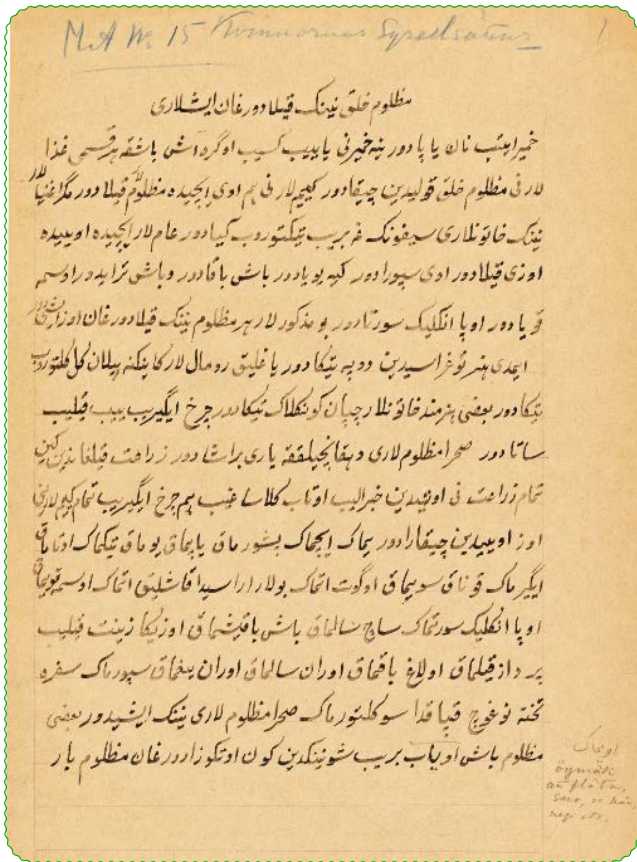 M.A No 15 Kvinnornas Sysselsättning 1
مظلوم خلق نینک قیلادورغان ایشلاری
خمیر ایتیب نان یاپادور ینه خمیرنی یاییب کسیب اوکره آش باشقه هر قسمی غذا
لارنی مظلوم خلق قولیدین چیقادور کییم لارنی هم اوی ایچیده مظلوم لار قیلادور مکر اغنیا لار
نینک خاتونلاری سیفونک غه بریب تیکتوروب کیادور عام لار ایچیده اوییده
اوزی قیلادور اوی سیپورادور کیه یویادور باش باقادور و باش تارایدور اوسمه
قویادور اوپا انکلیک سورتادور بو مذکور لار هر مظلوم نینک قیلادورغان اوز ایشی دور
ایمدی هنر توغراسیدین دوپه تیکادور یاغلیق رومال لارکا یکنه بیلان کل کلتوروب
تیکادور بعضی هنرمند خاتونلار چپان کونکلاک تیکادور چرخ ایکیریب ییپ قیلیب
ساتادور صحرا مظلوم لاری دهقانچیلیقغه یاری براشادور زراعت قیلغاندین کین
تمام زراعت نی اوزیدین خبر الیب اوتاب کلاسا غیب هم چرخ ایکیریب تمام کییم لارنی
اوز اوییدین چیقارادور یماک ایچماک پشورماق یاپماق یوماق تیکماک اوتاماق
ایکیرماک قوناق سویماق اوکوت اتماک بولار اراسیدا قاشلیق اتماک اوسمه قویماق
اوپا انکلیک سورتماک ساچ سالماق باش باقیشماق اوزیکا زینت قیلیب
پرداز قیلماق اولاغ باقماق اوران سالماق اوران ییغماق سیپورماک سفره
تخته نوغوچ قپاقدا سو کلتورماک صحرا مظلوم لاری نینک ایشیدور بعضی
مظلوم باش اویاب بریب شونینکدین کون اوتکوزادورغان مظلوم بار
اویماک
öymäk
att fläta,
snos, o. hår,
rep etc.